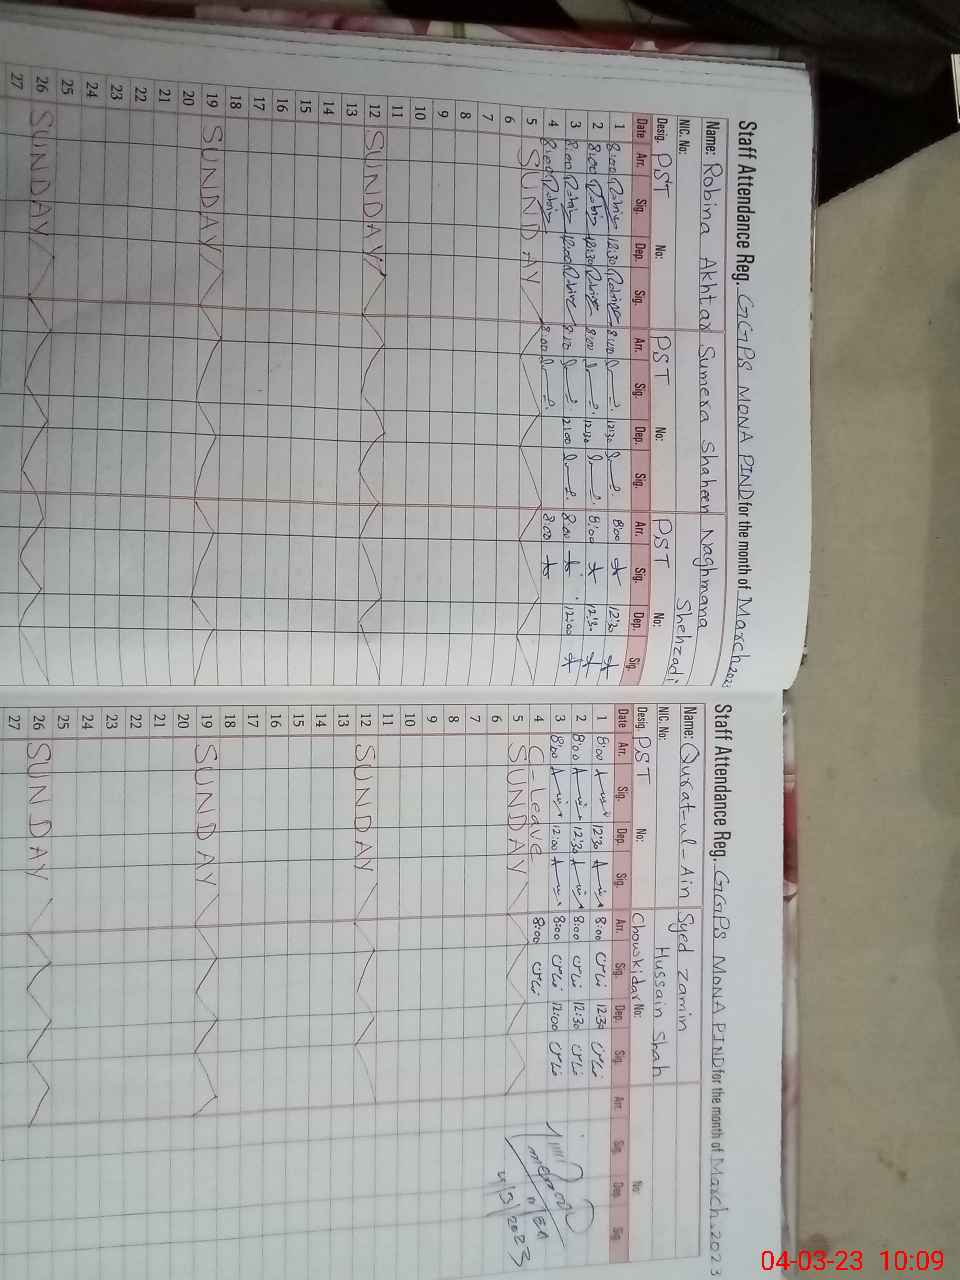 Staff Attendance Reg. GGPS MONA PIND for the month of March, 2023
Name: Robina Akhtar Sumera Shaheen Naghmana
NIC. No: Shehzadi
Desig. PST No: PST No: PST No:
Date Arr. Sig. Dep. Sig. Arr. Sig. Dep. Sig. Arr. Sig. Dep. Sig.
1 8:00 12:30 8:00 12:30 8:00 12:30
2 8:00 12:30 8:00 12:30 8:00 12:30
3 8:00 12:00 8:00 12:00 8:00 12:00
4 8:00 8:00 8:00
5 SUNDAY
6
7
8
9
10
11
12 SUNDAY
13
14
15
16
17
18
19 SUNDAY
20
21
22
23
24
25
26 SUNDAY
27
Staff Attendance Reg. GGPS MONA PIND for the month of March, 2023
Name: Qurat-ul-Ain Syed Zamin
NIC. No: Hussain Shah
Desig. PST No: Chowkidar No: No:
Date Arr. Sig. Dep. Sig. Arr. Sig. Dep. Sig. Arr. Sig. Dep. Sig.
1 8:00 12:30 8:00 12:30
2 8:00 12:30 8:00 12:30
3 8:00 12:00 8:00 12:00
4 C-Leave 8:00
5 SUNDAY
4/3/2023
6
7
8
9
10
11
12 SUNDAY
13
14
15
16
17
18
19 SUNDAY
20
21
22
23
24
25
26 SUNDAY
27
04-03-23 10:09